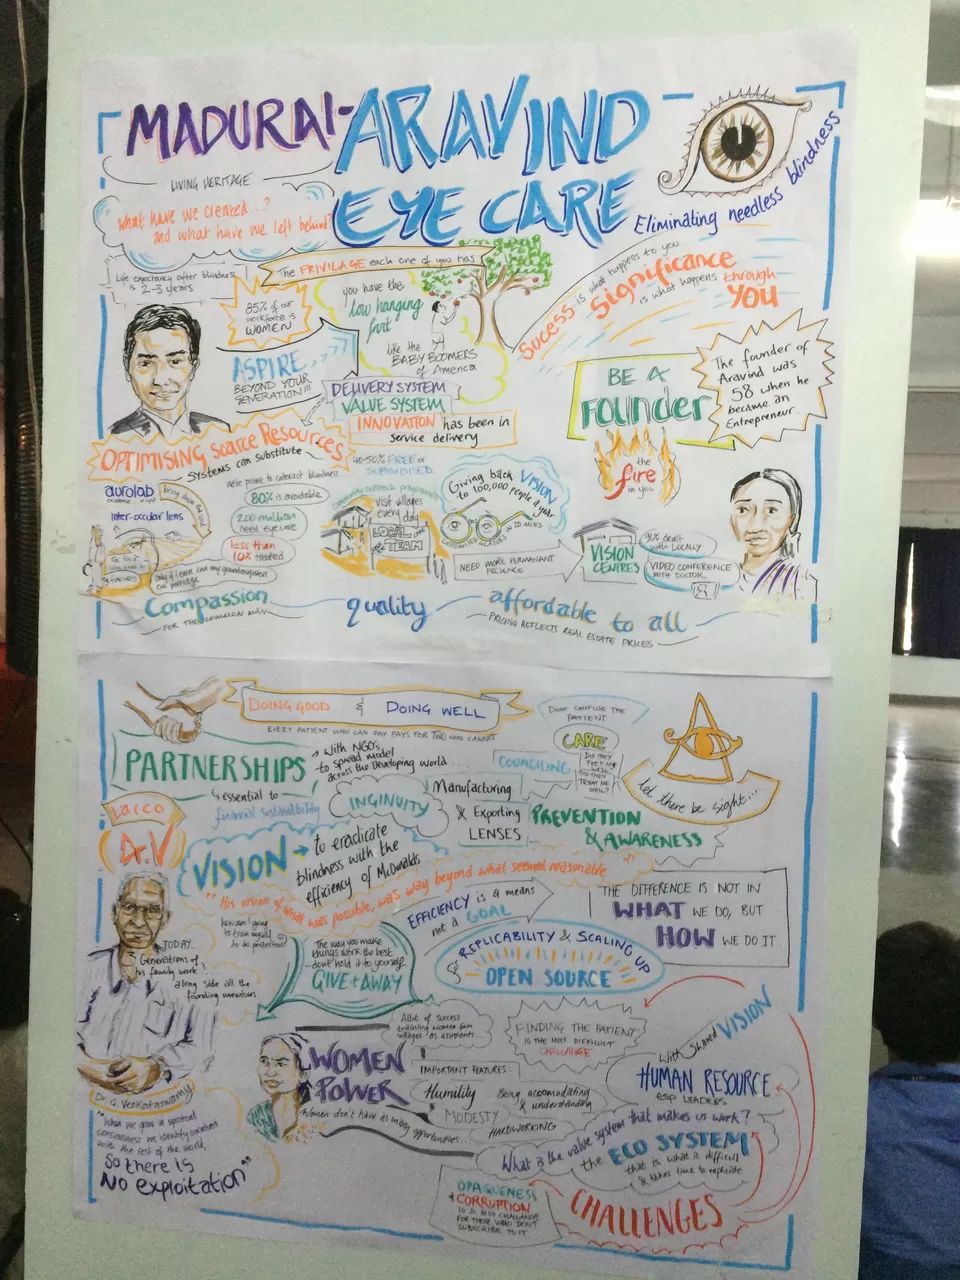 MADURAI-ARAVIND
EYE CARE
Eliminating needless blindness
LIVING HERITAGE
What have we created..?
and what have we left behind?
Life expectancy after blindness
is 2-3 years
The PRIVILAGE each one of you has
85% of our
workforce is
WOMEN
you have the
low hanging
fruit
like the
BABY BOOMERS
of America
Success is what happens to you
Significance
is what happens through
YOU
ASPIRE
BEYOND YOUR
GENERATION!!!
DELIVERY SYSTEM
VALUE SYSTEM
INNOVATION has been in
service delivery
BE A
FOUNDER
The founder of
Aravind was
58 when he
became an
Entrepreneur.
the
fire
in you
OPTIMISING Scarce Resources
Systems can substitute
40-50% FREE or
SUBSIDISED
aurolab
inter-occular lens
80% is avoidable
200 million
need eye care
less than
10% treated
visit villages
every day
LOCAL
TEAM
Giving back VISION
to 100,000 people a year
NEED MORE PERMANANT
PRESENCE
VISION
CENTRES
91% dealt
with LOCALLY
VIDEO CONFERENCE
WITH DOCTOR
Compassion
FOR THE COMMON MAN
quality
affordable to all
PRICING REFLECTS REAL ESTATE PRICES
DOING GOOD & DOING WELL
EVERY PATIENT WHO CAN PAY PAYS FOR TWO WHO CANNOT
DON'T CONFUSE THE
PATIENT
CARE
DID THEY
TREAT ME
WELL?
COUNCILING
PARTNERSHIPS
with NGO's
to spread model
across the Developing world....
essential to
financial sustainability
INGINUITY
Manufacturing
& Exporting
LENSES
PREVENTION
& AWARENESS
let there be sight...
Laico
Dr.V
VISION → to eradicate
blindness with the
efficiency of McDonalds
"His vision of what was possible, was way beyond what seemed reasonable"
how am I going
to train myself
to do perfection?
EFFICIENCY is a means
not a GOAL
THE DIFFERENCE IS NOT IN
WHAT WE DO, BUT
HOW WE DO IT
TODAY
3 Generations of
his family work
along side all the
founding members
The way you make
things work the best
don't hold it to yourself
GIVE it AWAY
for REPLICABILITY & SCALING UP
OPEN SOURCE
Dr. G. Venkataswamy
"When we grow in spiritual
consciousness we identify ourselves
with the rest of the world,
So there is
No exploitation"
A lot of success
training women from
villages as assistants
WOMEN
POWER
Women don't have as many opportunities
IMPORTANT FEATURES:
Humility
Being accomodating
& understanding
MODESTY
HARDWORKING
FINDING THE PATIENT
IS THE MOST DIFFICULT
CHALLENGE
With shared VISION
HUMAN RESOURCE
esp LEADERS
What is the value system that makes us work?
the ECO SYSTEM
that is what is difficult
& takes time to replicate
OPAQUENESS
& CORRUPTION
IS A BIG CHALLENGE
FOR THOSE WHO DON'T
SUBSCRIBE TO IT
CHALLENGES